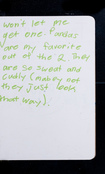 won't let me
get one. Pandas
are my favorite
out of the 2. They
are so sweet and
cudly (maby not
they just look
that way).